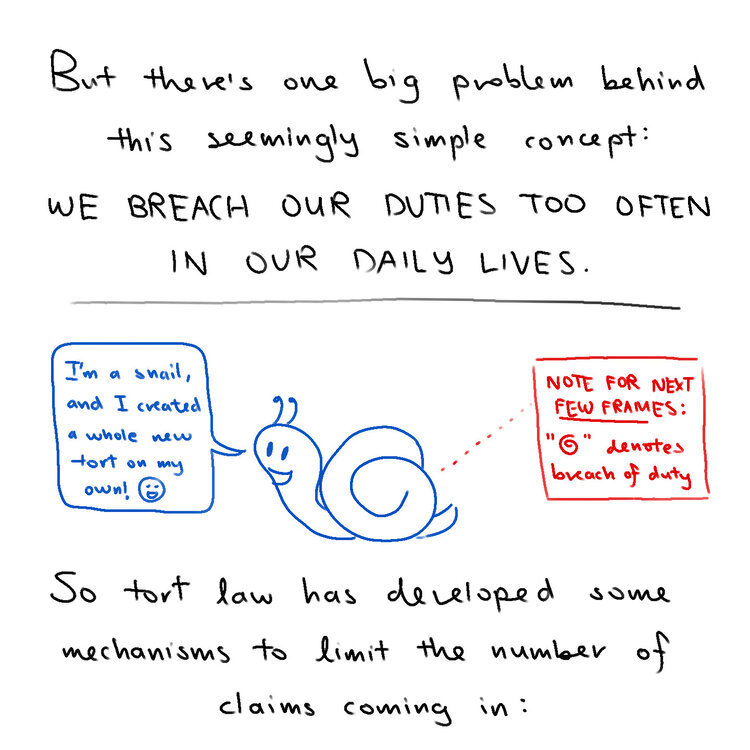 But there's one big problem behind
this seemingly simple concept:
WE BREACH OUR DUTIES TOO OFTEN
IN OUR DAILY LIVES.
I'm a snail,
and I created
a whole new
tort on my
own! 😃
NOTE FOR NEXT
FEW FRAMES:
"🌀" denotes
breach of duty
So tort law has developed some
mechanisms to limit the number of
claims coming in: